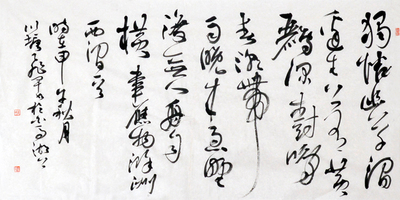 獨憐幽草澗
邊生上有黃
鸝深樹鳴
春潮帶
雨晚來急野
渡無人舟自
橫韋應物滁州
西澗
時在甲午秋月